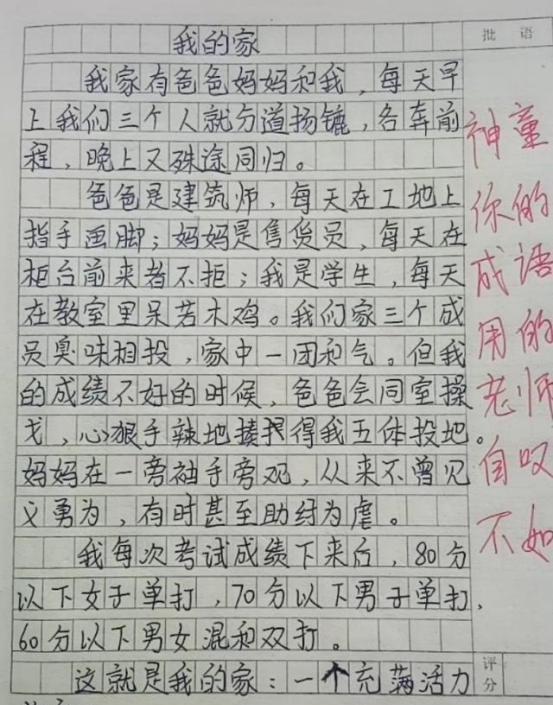 我的家
批语
我家有爸爸妈妈和我，每天早
上我们三个人就分道扬镳，各奔前
程，晚上又殊途同归。
爸爸是建筑师，每天在工地上
指手画脚；妈妈是售货员，每天在
柜台前来者不拒；我是学生，每天
在教室里呆若木鸡。我们家三个成
员臭味相投，家中一团和气。但我
的成绩不好的时候，爸爸会同室操
戈，心狠手辣地揍得我五体投地。
妈妈在一旁袖手旁观，从来不曾见
义勇为，有时甚至助纣为虐。
我每次考试成绩下来后，80分
以下女子单打，70分以下男子单打，
60分以下男女混和双打。
这就是我的家：一个充满活力
神童
你的
成语
用的
老师
自叹
不如
评分